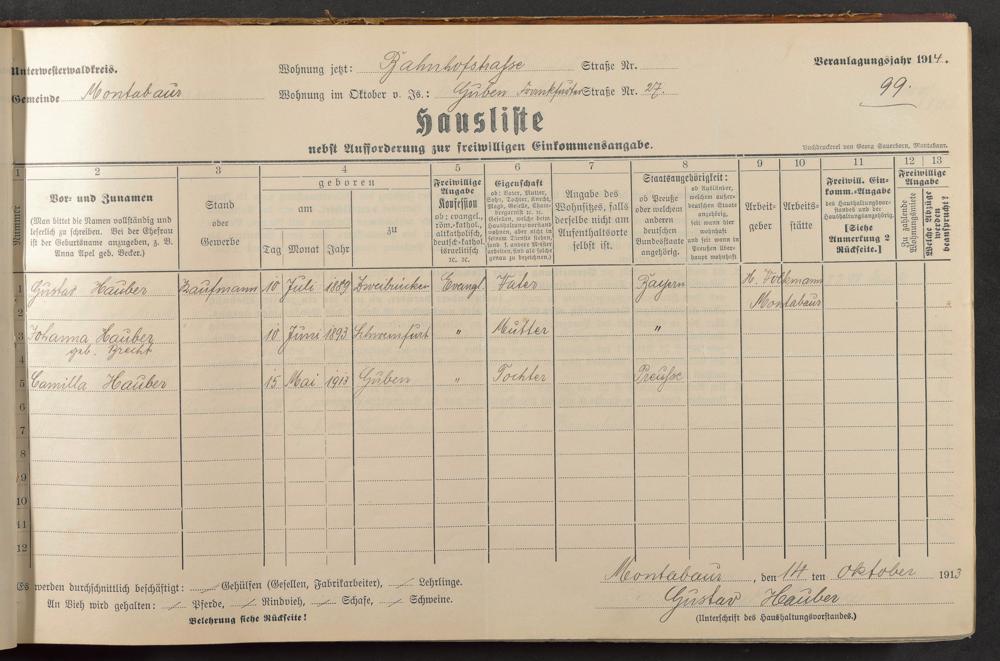 Unterwesterwaldkreis.
Wohnung jetzt: Bahnhofstrasse Straße Nr.
Veranlagungsjahr 1914.
Gemeinde Montabaur
Wohnung im Oktober v. Js.: Guben Frankfurter Straße Nr. 27.
99.
Hausliste
nebst Aufforderung zur freiwilligen Einkommensangabe.
Buchdruckerei von Georg Sauerborn, Montabaur.
1 2 3 4 5 6 7 8 9 10 11 12 13
Nummer
Vor- und Zunamen
(Man bittet die Namen vollständig und
leserlich zu schreiben. Bei der Ehefrau
ist der Geburtsname anzugeben, z. B.
Anna Apel geb. Becker.)
Stand
oder
Gewerbe
geboren
am
Tag Monat Jahr
zu
Freiwillige
Angabe
Konfession
ob: evangel.,
röm.-kathol.,
altkatholisch,
deutsch-kathol.
israelitisch
ec. ec.
Eigenschaft
ob: Vater, Mutter,
Sohn, Tochter, Knecht,
Magd, Geselle, Cham-
bergarnist ec. ec.
Angabe des
Wohnsitzes, falls
derselbe nicht am
Aufenthaltsorte
selbst ist.
Staatsangehörigkeit:
ob Preuße
oder welchem
anderen
deutschen
Bundesstaate
angehörig.
ob Ausländer,
welchem außer-
deutschen Staate
angehörig,
seit wann hier
wohnhaft
und seit wann in
Preußen über-
haupt wohnhaft
Arbeit-
geber
Arbeits-
stätte
Freiwill. Ein-
komm.-Angabe
des Haushaltungsvor-
standes und der
Haushaltungsangehörig.
[Siehe
Anmerkung 2
Rückseite.]
Freiwillige
Angabe
Zu zahlende
Wohnungsmiete
Welche Abzüge
werden
beansprucht?
1 Gustav Hauber Kaufmann 10 Juli 1889 Zweibrücken Evangl. Vater Bayern H. Volkmann
2 Montabaur
3 Johanna Hauber 10 Juni 1893 Schweinfurt " Mutter "
geb. Brecht
4
5 Camilla Hauber 15 Mai 1913 Guben " Tochter Preusse
6
7
8
9
10
11
12
Es werden durchschnittlich beschäftigt: Gehülfen (Gesellen, Fabrikarbeiter), Lehrlinge.
An Vieh wird gehalten: Pferde, Rindvieh, Schafe, Schweine.
Belehrung siehe Rückseite!
Montabaur, den 14 ten Oktober 1913
Gustav Hauber
(Unterschrift des Haushaltungsvorstandes.)